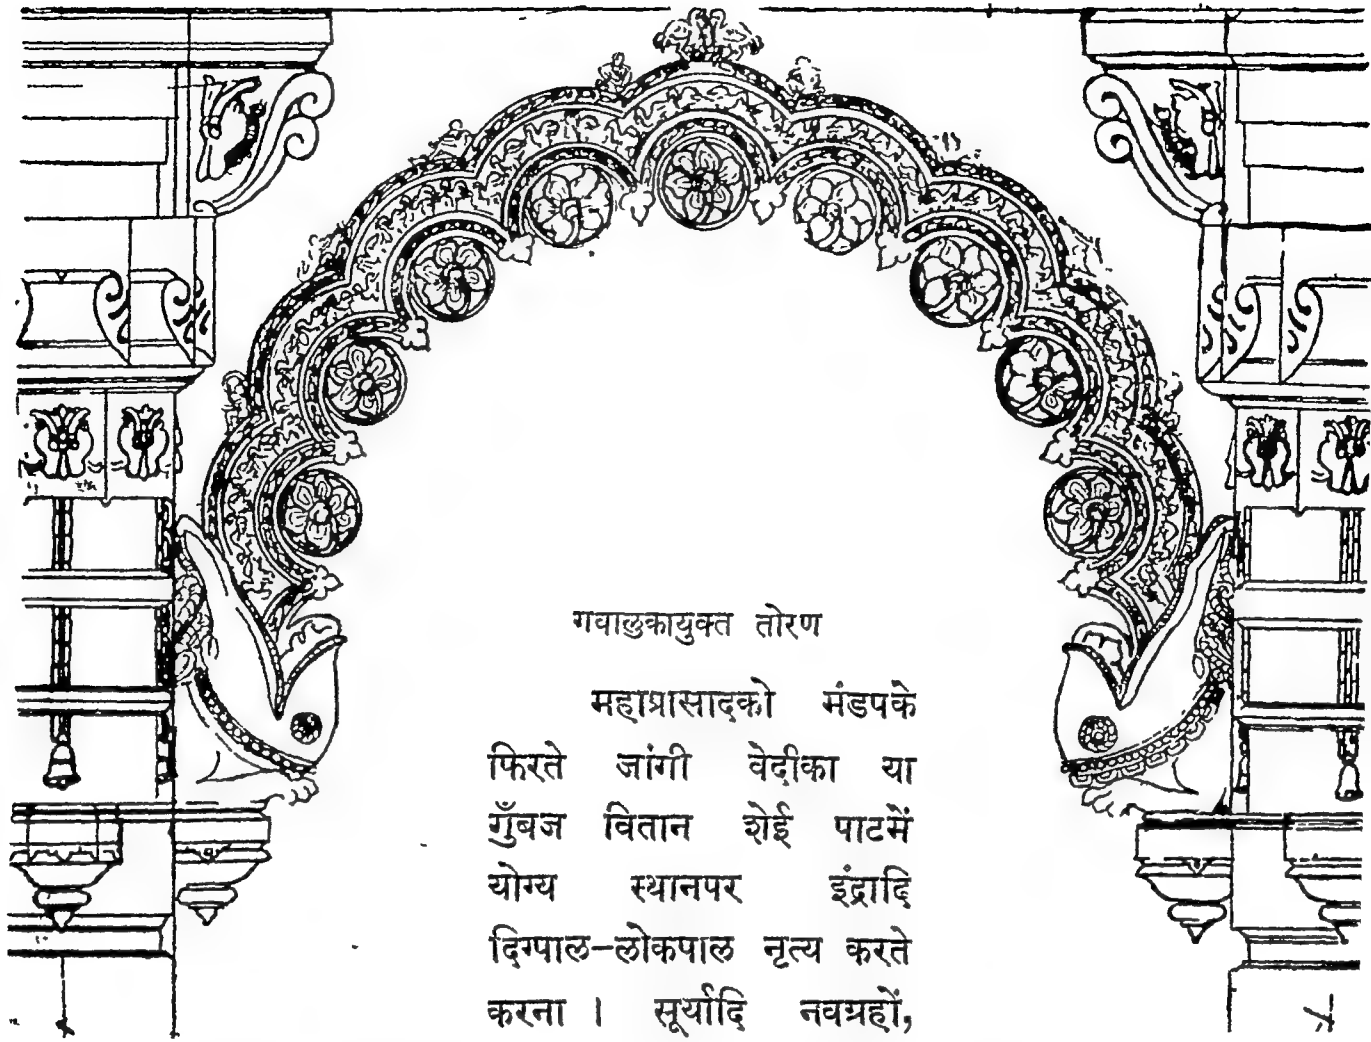 गवालुकायुक्त तोरण
महाप्रासादको मंडपके
फिरते जांगी वेदीका या
गुँबज वितान शेई पाटमें
योग्य स्थानपर इंद्रादि
दिग्पाल–लोकपाल नृत्य करते
करना । सूर्यादि नवग्रहों,